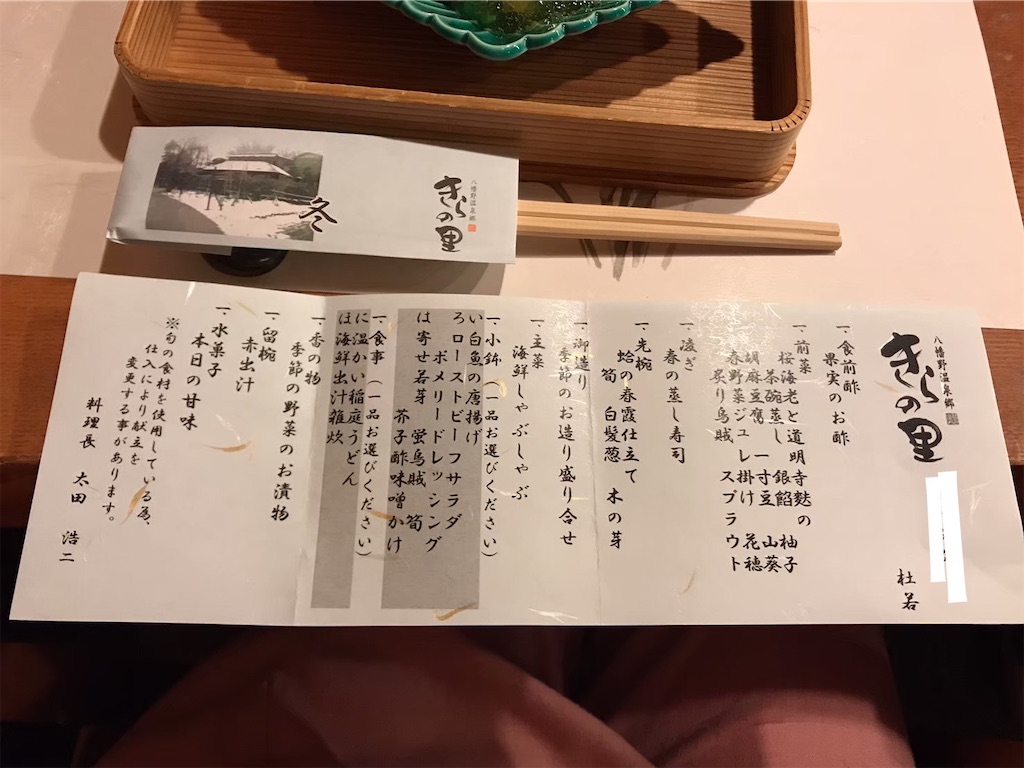 冬
八幡野温泉郷
きらの里
八幡野温泉郷
きらの里
杜若
一、食前酢
果実のお酢
一、前菜
桜海老と道明寺麩の
茶碗蒸し 銀餡 柚子
胡麻豆腐 一寸豆 山葵
春野菜ジュレ掛け 花穂
炙り烏賊 スプラウト
一、凌ぎ
春の蒸し寿司
一、先椀
蛤の春霞仕立て
筍 白髪葱 木の芽
一、御造り
季節のお造り盛り合せ
一、主菜
海鮮しゃぶしゃぶ
一、小鉢 (一品お選びください)
い 白魚の唐揚げ
ろ ローストビーフサラダ
ポメリードレッシング
は 寄せ若芽 蛍烏賊 筍
芥子酢味噌かけ
一、食事 (一品お選びください)
に 温かい稲庭うどん
ほ 海鮮出汁雑炊
一、香の物
季節の野菜のお漬物
一、留椀
赤出汁
一、水菓子
本日の甘味
※旬の食材を使用している為、
仕入により献立を
変更する事があります。
料理長 太田 浩二